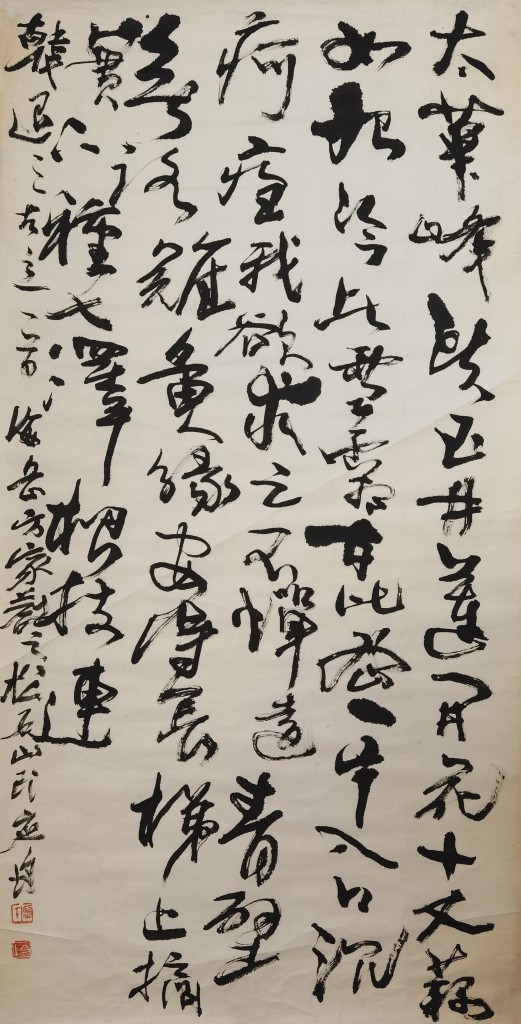 太華峰頭玉井蓮開花十丈藕
如船冷比雪霜甘比蜜一片入口沉
痾痊我欲求之不憚遠青壁
無路難夤緣安得長梯上摘
實下種七澤根枝連
韓退之古意一首 海岳方家 之 松石山